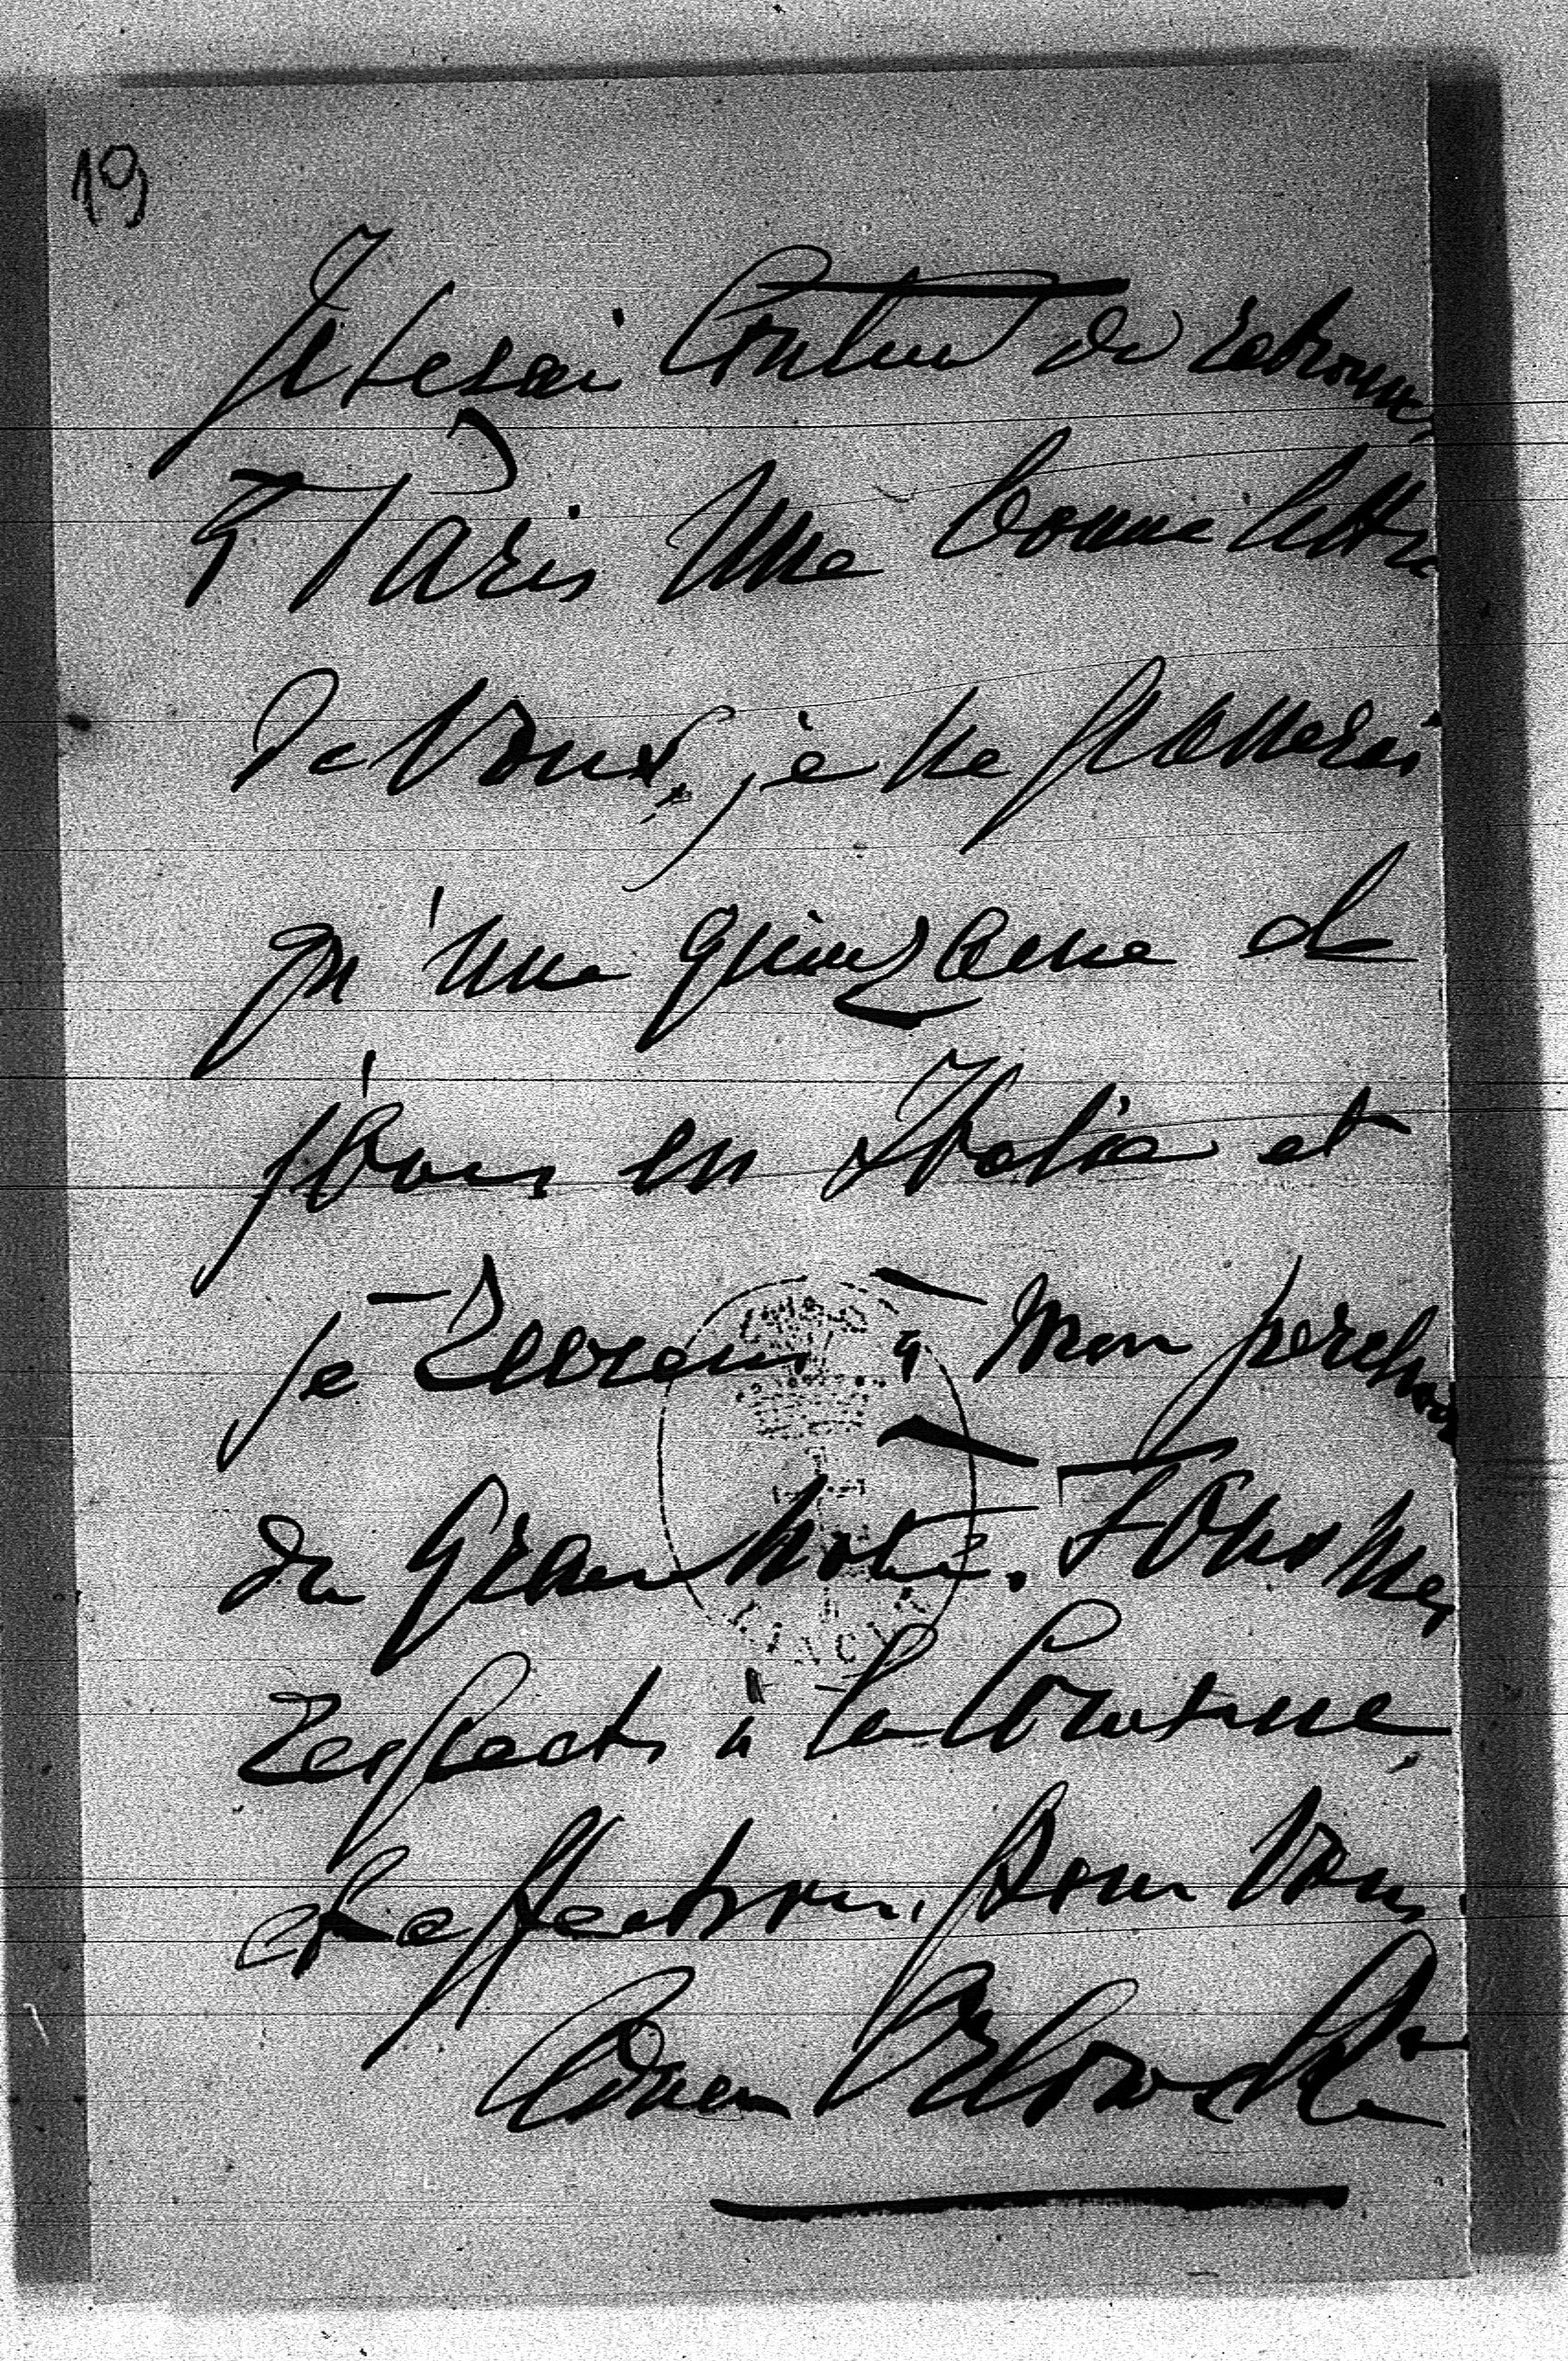 19
Je serai Content de retrouver
à Paris Une bonne lettre
De Vous, je ne passerai
qu'une quinzaine de
jours en Italie et
je reviens à Mon perchoir
du Grand hotel. Tous Mes
respects à la Comtesse
et affections pour Vous.
Orlowski